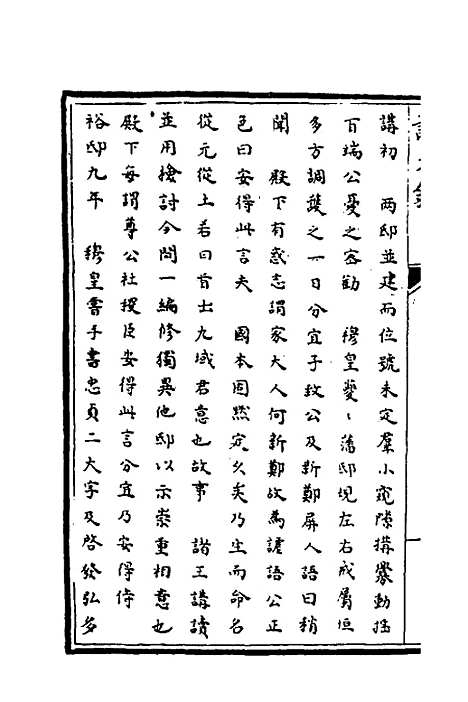 講初　兩邸並建而位號未定羣小窺隙搆釁動搖
百端公憂之密勸　穆皇夔〻藩邸規左右戒屬垣
多方調護之一日分宜子致公及新鄭屏人語曰稍
聞　殿下有惑志謂家大人何新鄭故為謔語公正
色曰安得此言夫　國本固默定久矣乃生而命名
從元從土若曰首出九域君意也故事　諸王講讀
並用檢討今間一編修獨異他邸以示崇重相意也
殿下每謂尊公社稷臣安得此言分宜乃安得侍
裕邸九年　穆皇嘗手書忠貞二大字及啓發弘多